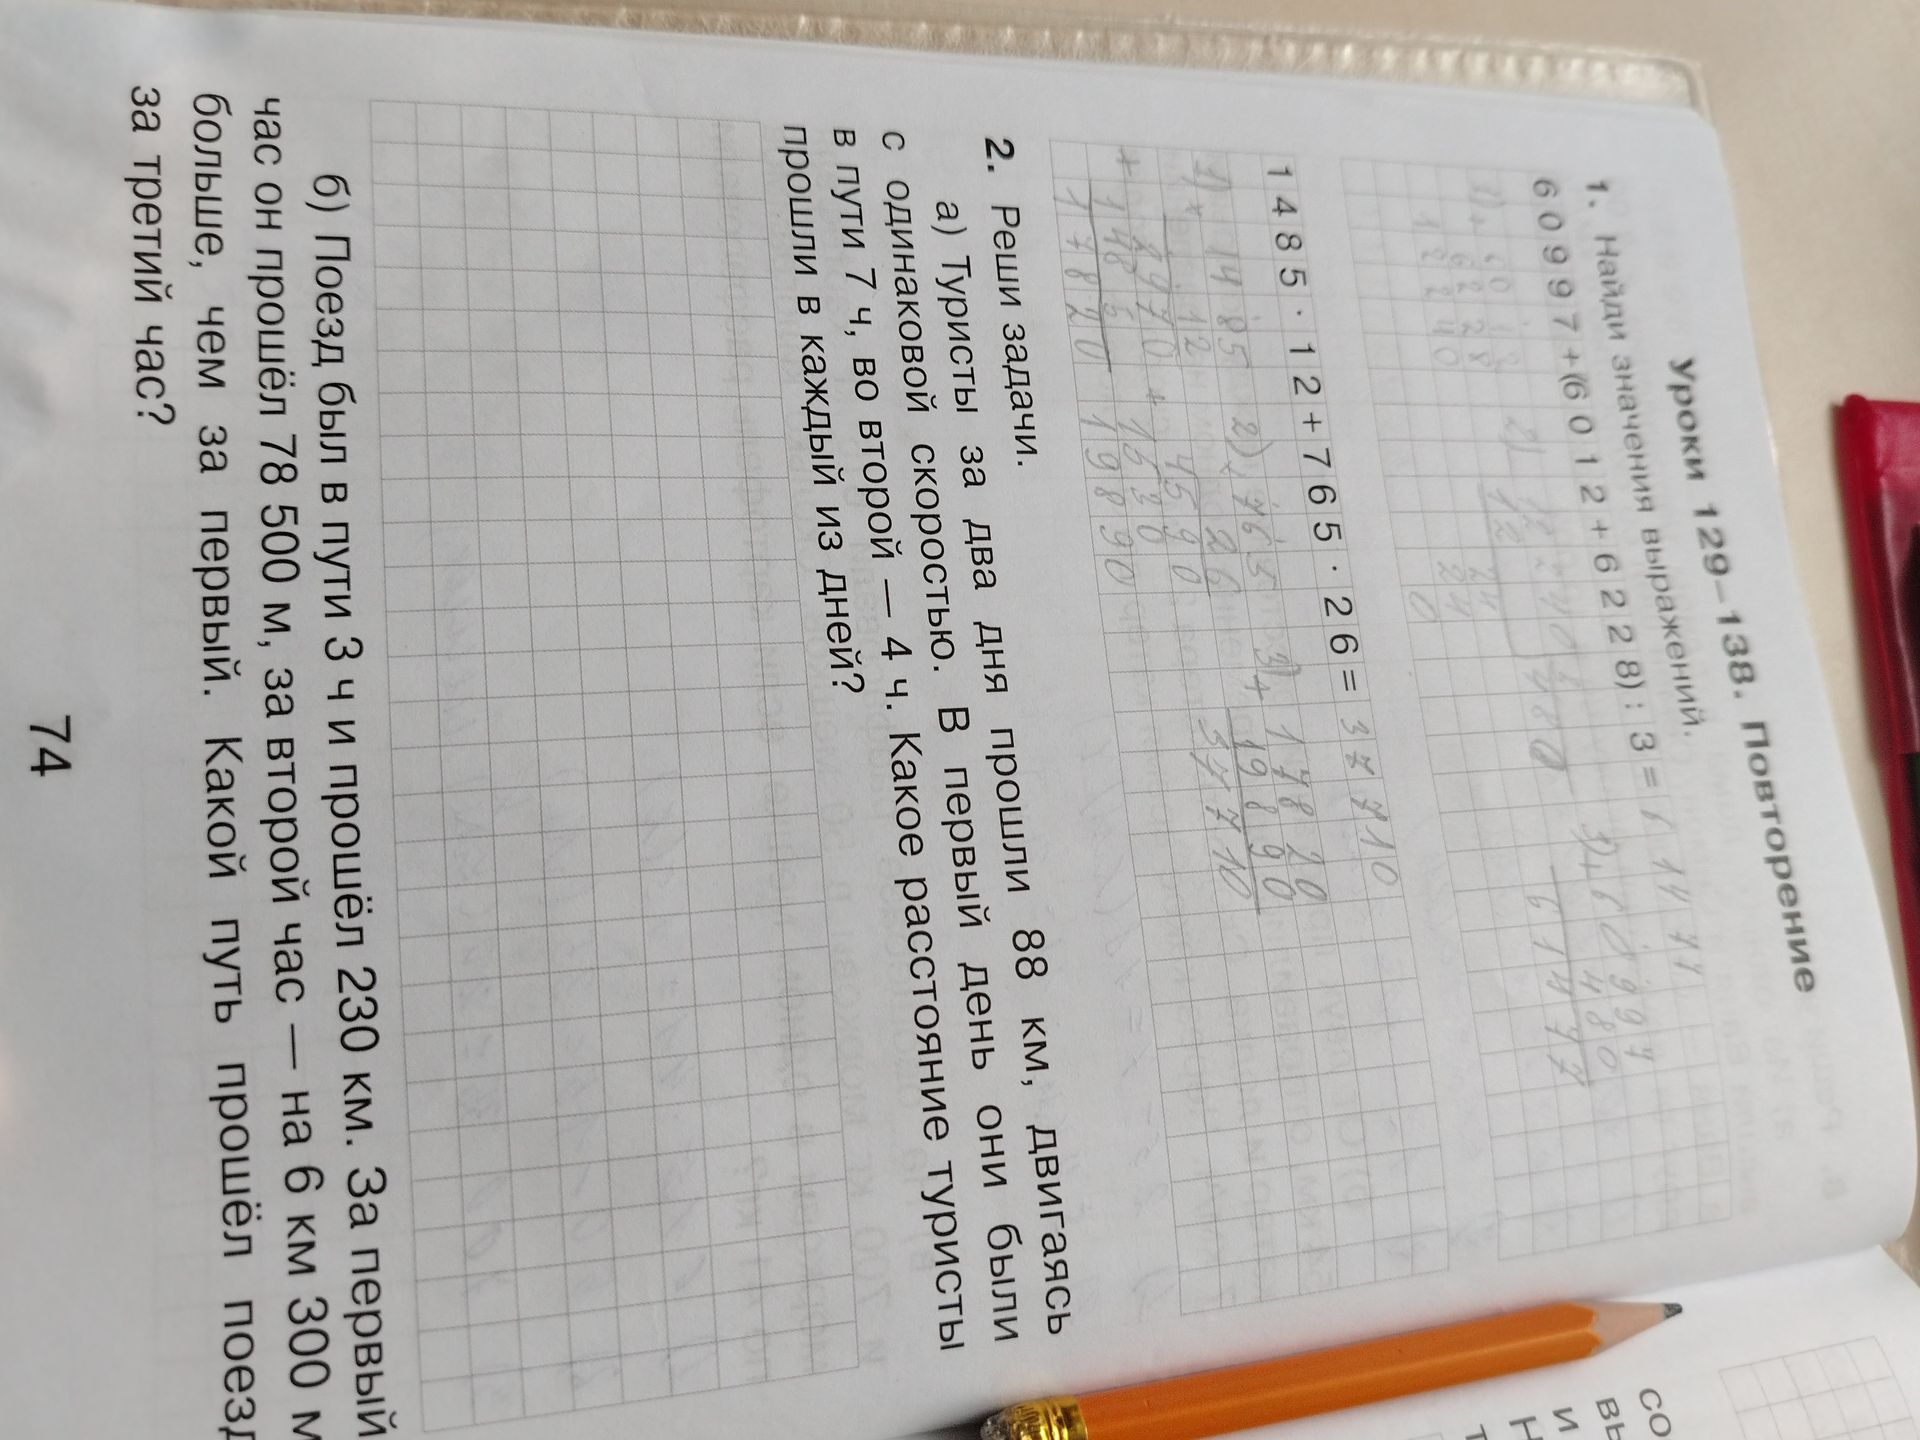 Уроки 129–138. Повторение
1. Найди значения выражений.
609997+(6012+6228):3= 614477
1)+ 6012 2) 12240 3)+ 609997
6228 12 4480
12240 24 614477
24
0
1485·12+765·26= 37710
1)× 1485 2)× 765 3)+ 17820
12 26 19890
2970 4590 37710
+ 1485 + 1530
17820 19890
2. Реши задачи.
а) Туристы за два дня прошли 88 км, двигаясь
с одинаковой скоростью. В первый день они были
в пути 7 ч, во второй — 4 ч. Какое расстояние туристы
прошли в каждый из дней?
б) Поезд был в пути 3 ч и прошёл 230 км. За первый
час он прошёл 78 500 м, за второй час — на 6 км 300 м
больше, чем за первый. Какой путь прошёл поезд
за третий час?
74
со
вы
и
Н
т